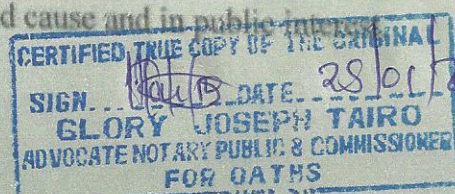 d cause and in public interest
CERTIFIED TRUE COPY OF THE ORIGINAL
SIGN. DATE. 28/01/
GLORY JOSEPH TAIRO
ADVOCATE NOTARY PUBLIC & COMMISSIONER
FOR OATHS